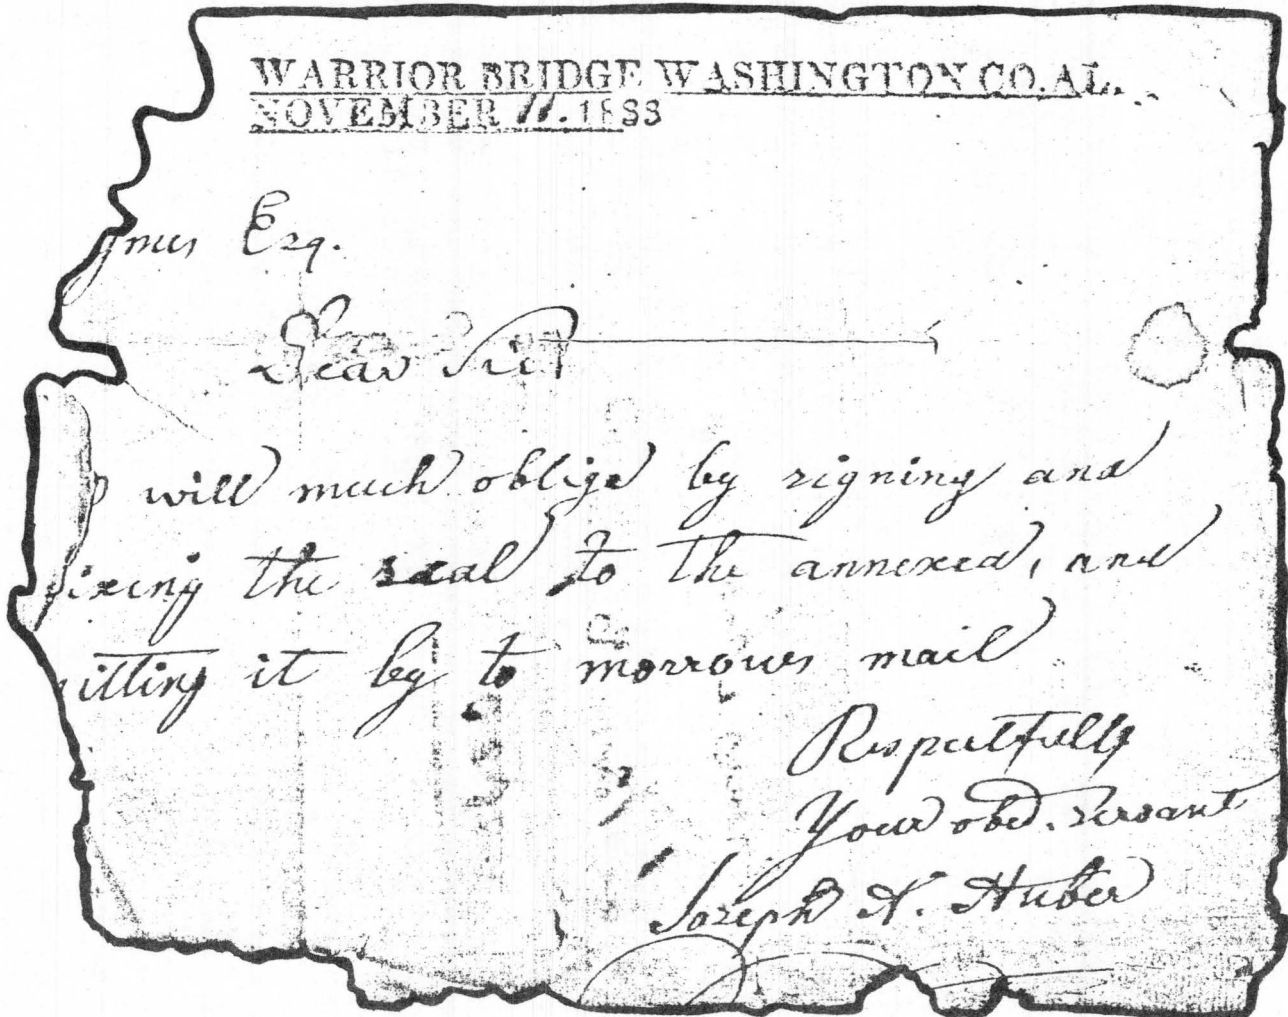 WARRIOR BRIDGE WASHINGTON CO. AL.
NOVEMBER 11. 1883
Esq.
Dear Sir
will much oblige by signing and
ixing the seal to the annexed, and
itting it by to morrows mail
Respectfully
Your obd. servant
Joseph N. Huber